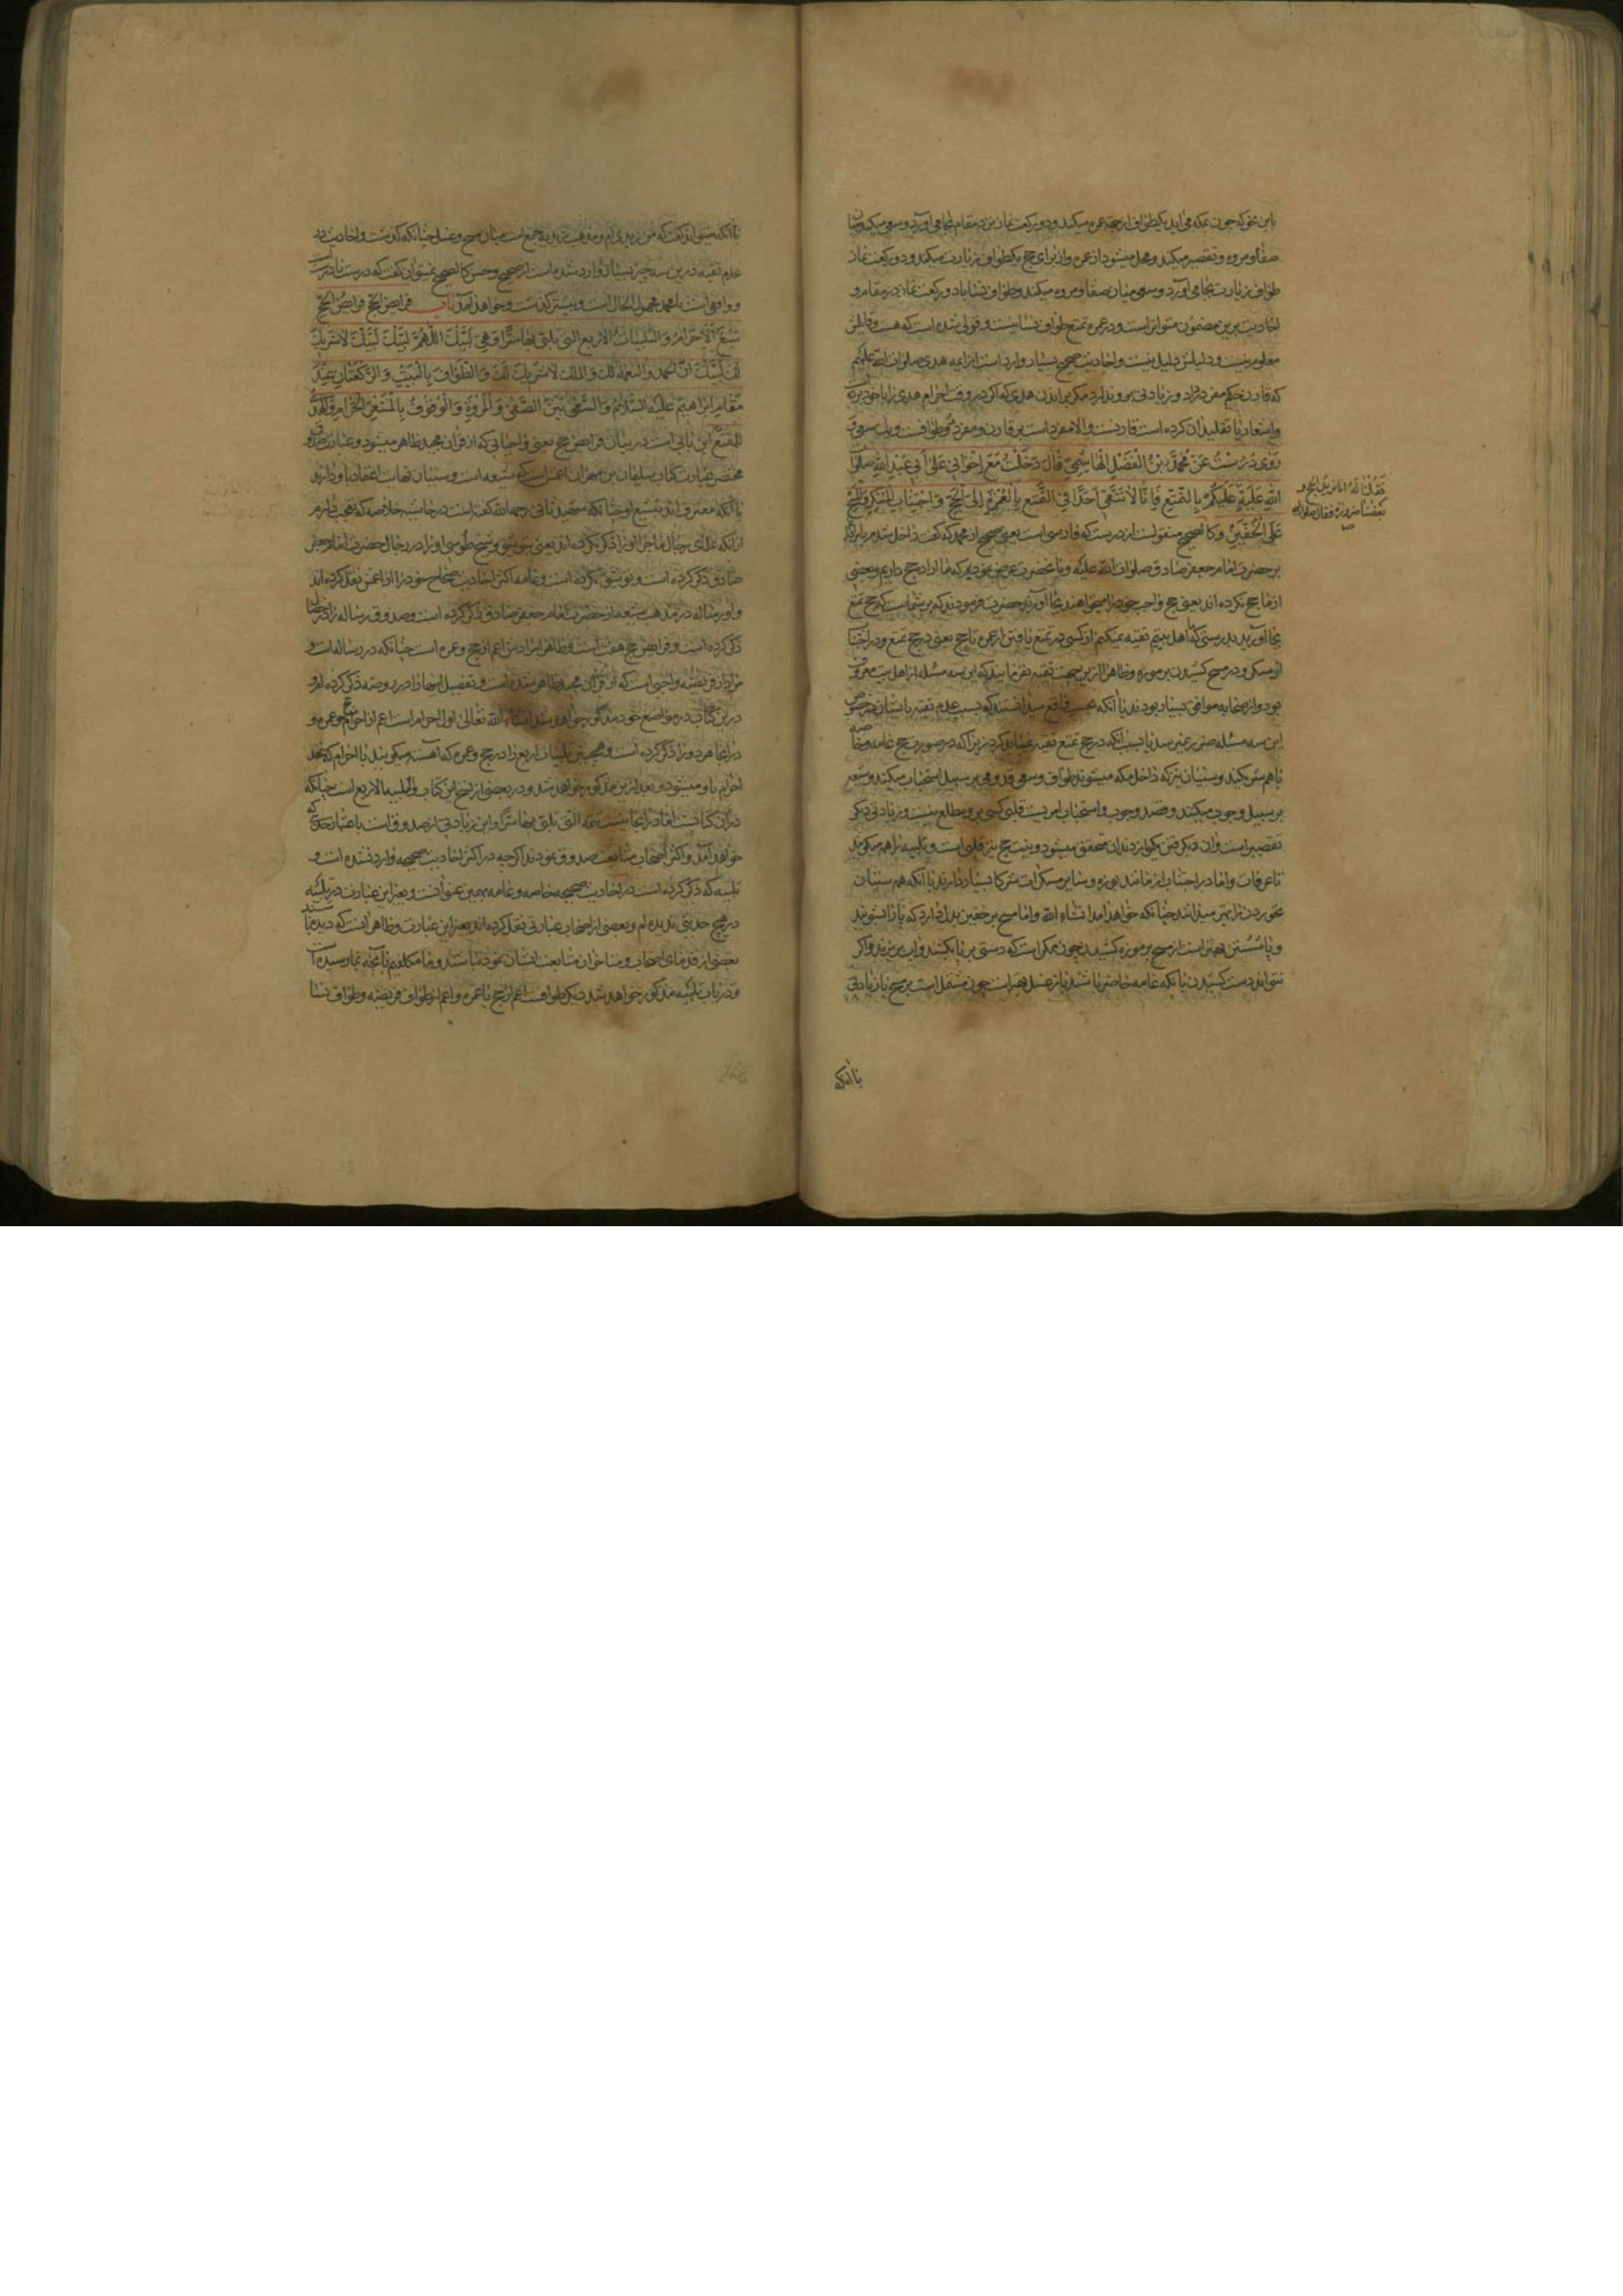 باین نحو که چون بمکه می آید یکطواف از جهة عمره میکند و دو رکعت نماز نزد مقام بجا می آورد و سعی میکند میان
صفا و مروه و تقصیر میکند و محل میشود از عمره و از برای حج یکطواف زیارت میکند و دو رکعت نماز
طواف زیارت بجا می آورد و سعی میان صفا و مروه میکند و طواف نسا با دو رکعت نماز در مقام و
احادیث برین مضمون متواتر است و در عمره تمتع طواف نسا نیست و قولی شده است که هست و قایلش
معلوم نیست و دلیلش دلیل نیست و احادیث صحیح بسیار وارد است از ایمه هدی صلوات الله علیهم
که قارن حکم مفرد دارد و زیادتی برو ندارد مگر براندن هدی که اگر در وقت احرام هدی را با خود برده
و اشعار یا تقلید آن کرده است قارنست و الا مفرد است بر قارن و مفرد دو طوافست و یک سعی
رَوی دُرُسْتُ عَنْ مُحَمَّدِ بْنِ الْفَضْلِ الْهاشِمِیِّ قالَ دَخَلْتُ مَعَ اِخْوانی عَلی اَبی عَبْدِ اللّهِ صلوات
اللّهِ عَلَیْهِ عَلَیْکُمْ بِالتَّمَتُّعِ فَاِنّا لا نَتَّقی اَحَدًا فِی التَّمَتُّعِ بِالْعُمْرَةِ اِلَی الْحَجِّ وَ اجْتِنابِ الْمُسْکِرِ وَ الْمَسْحِ
فَقُلْنا لَهُ اِنّا نریدُ الحج و
بعضنا صرورة فقال صلوات
عَلَی الْخُفَّیْنِ و کالصحیح منقولست از درست که فارسی است یعنی صحیح از محمد که گفت داخل شدم با برادران
بر حضرت امام جعفر صادق صلوات الله علیه و بآنحضرت عرض نمودیم که ما اراده حج داریم و بعضی
از ما حج نکرده اند یعنی حج واجب خود را میخواهند بجا آورند حضرت فرمودند که بر شماست که حج تمتع
بجا آورید بدرستی که ما اهل بیتیم تقیه نمیکنیم از کسی در تمتع یافتن از عمره تا حج یعنی در حج تمتع و در اجتناب
از مسکر و در مسح کشیدن بر موزه و ظاهرا ازین جهت تقیه نفرمایند که این سه مسئله از اهل بیت معروف
بود و از صحابه موافق بسیار بودند یا آنکه بحسب واقع میدانستند که بسبب عدم تقیه بایشان در خصوص
این سه مسئله ضرر نمیرسد یا بسبب آنکه در حج تمتع تقیه نمیباید کرد زیرا که در صورت حج عامه و خاصه
باهم شریکند و سنیان نیز که داخل مکه میشوند طواف و سعی قدومی بر سبیل استحباب میکنند و شیعه
بر سبیل وجوب میکنند و قصد وجوب و استحباب امریست قلبی کسی برو مطلع نیست و زیادتی دیگر
تقصیر است و آن بگرفتن یک مو از دندان متحقق میشود و نیت حج نیز قلبی است و تلبیه را هم میگویند
تا عرفات و اما در اجتناب از مانند بوزه و سایر مسکرات شرکا بسیار دارند با آنکه هم سنیان
نخوردن را بهتر میدانند چنانکه خواهد آمد انشاء الله و اما مسح بر خفین بدل دارد که پا را بشویند
و پا شستن بهتر است از مسح بر موزه کشیدن چون ممکن است که دستی بر پا بکشند و آب بریزند و اگر
نتوانند دست کشیدن با آنکه عامه حاضر باشند باز غسل بهتر است چون مشتمل است بر مسح با زیادتی
با آنکه
با آنکه میتواند گفت که من زیدی ام و مذهب زیدیه جمع است میان مسح و غسل چنانکه گذشت و احادیث در
عدم تقیه درین سه چیز بسیار وارد شده است از صحیح و حسن کالصحیح نمیتوان گفت که درست نادرست
و واقفی است یا محمد مجهول الحال است و بیشتر گذشت و خواهد آمد باب فرایض الحج فرایض الحج
سَبْعٌ الْاِحْرامُ وَ التَّلْبِیاتُ الاربع التی یلبّی بها سِرًّا وَ هِیَ لَبَّیْکَ اللّهُمَّ لَبَّیْکَ لَبَّیْکَ لا شَریکَ
لَکَ لَبَّیْکَ اِنَّ الحمد و النعمة لک و الملک لا شَریکَ لَکَ وَ الطَّوافُ بِالْبَیْتِ وَ الرَّکْعَتانِ عِنْدَ
مَقامِ اِبْراهیمَ عَلَیْهِ السَّلامُ وَ السَّعْیُ بَیْنَ الصَّفی وَ الْمَرْوَةِ وَ الْوُقُوفُ بِالْمَشْعَرِ الْحَرامِ وَ الْهَدْیُ
لِلْمُتَمَتِّعِ این بابی است در بیان فرایض حج یعنی واجباتی که از قرآن مجید ظاهر میشود و عبارت صدوق
مختصر عبارت کتاب سلیمان بن مهران اعمش است که شیعه است و سنیان نهایت اعتقاد باو دارند
با آنکه معترف اند بتشیع او چنانکه شهید ثانی رحمه الله گفته است در حاشیه خلاصه که تعجب دارم
از آنکه علمای رجال ما چرا او را ذکر نکرده اند یعنی بتوثیق و شیخ طوسی او را در رجال حضرت امام جعفر
صادق ذکر کرده است و توثیق نکرده است و عامه اکثر احادیث صحاح خود را از اعمش نقل کرده اند
و او رساله در مذهب شیعه از حضرت امام جعفر صادق ذکر کرده است و صدوق رساله را در خصال
ذکر کرده است و فرایض حج هفت است و ظاهرا مرادش اعم از حج و عمره است چنانکه در رساله است و
مراد از فریضه واجبی است که از قرآن مجید ظاهر شده است و تفصیل اینها را در روضه ذکر کرده ام و
درین کتاب در مواضع خود مذکور خواهد شد انشاء الله تعالی اول احرام است اعم از احرام حج و عمره و
در اینجا هر دو را ذکر کرده است و همچنین تلبیات اربع را در حج و عمره که آهسته میگویند با احرام که عقد
احرام باو میشود و بعد ازین مذکور خواهد شد و در بعضی از نسخ این کتاب و التلبیه الاربع است چنانکه
خواهد آمد و اکثر اصحاب متابعت صدوق نمودند اگر چه در اکثر احادیث صحیحه وارد نشده است و
تلبیه که ذکر کرده است در احادیث صحیحه خاصه و عامه بهمین عنوانست و بغیر این عبارت در تلبیه
در هیچ حدیثی ندیده ام و بعضی از اصحاب عبارتی نقل کرده اند بغیر این عبارت و ظاهر آنست که دیده باشند
بعضی از قدمای اصحاب و متاخران متابعت ایشان نموده باشند و ما مکلفیم بآنچه بما رسیده است
و در باب تلبیه مذکور خواهد شد دیگر طوافست اعم از حج یا عمره و اعم از طواف فریضه و طواف نسا